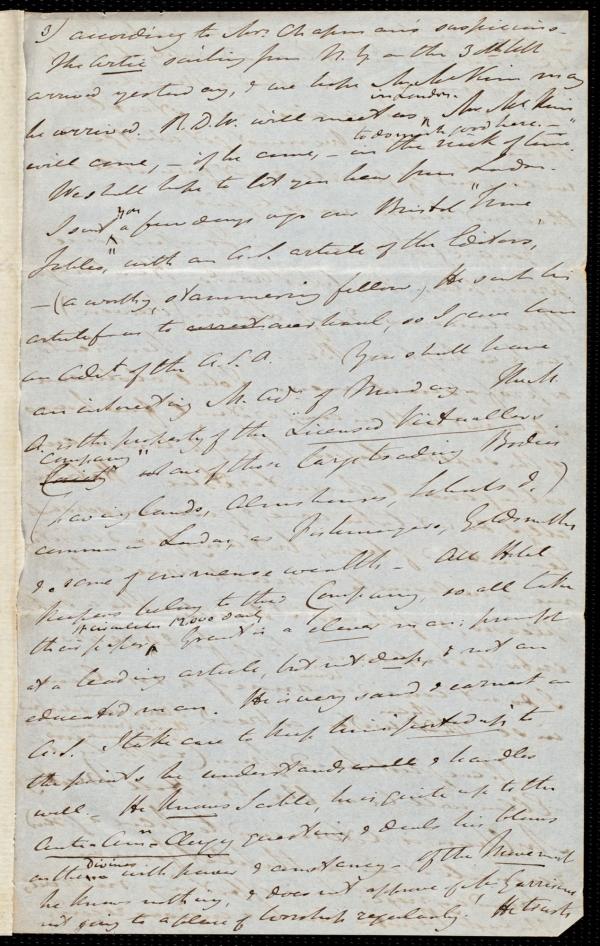 3) according to Mrs Chapman's suspicions.
The Artic sailing from N.Y. on the 3rd ult
arrived yesterday, & we hope Mr McKim may
in London.
be arrived. R.D.W. will meet us Mr McKim
to do much good here. –
will come, – if he come, – in the nick of time.
We shall hope to let you hear from London.
I sent you a few days ago our Bristol "Time
Tables," with an a.s. article of the Editors,
– (a worthy, stammering fellow, He sent his
article for us to correct over haul, so I gave him
an edit. of the A.S.A. You shall have
an interesting M. Adr. of Monday The M.
A. is the property of the "Licensed Victuallers
Company"
Society" one of those large trading Bodies
(having lands, almshouses, schools &c)
common in London, as Fishmongers, Goldsmiths
&c some of immense wealth – All Hotel
keepers belong to this Company, so all take
It circulates 12.000 daily
their paper, Grant is a clever man; prompt
at a leading article, but not deep, & not an
educated man. He is very sound & earnest on
a.s. I take care to keep him posted up to
the points he understands well & handles
well – He knows Sable, he is quite up to the
Anti-Amn-Clergy question, & deals his blows
divines
on them with power & constancy – Of the Movement
he knows nothing, & does not approve of Mr Garrison's
not going to a place of worship regularly! He trusts